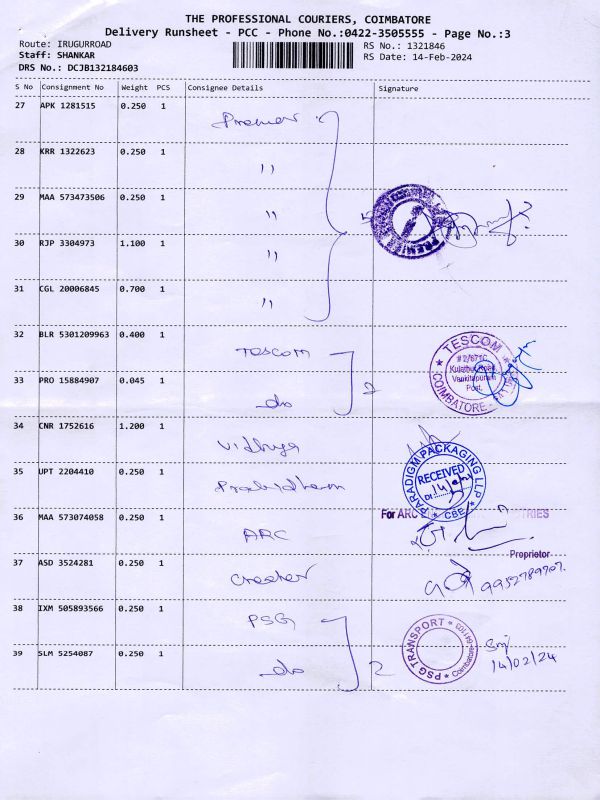 THE PROFESSIONAL COURIERS, COIMBATORE
Delivery Runsheet - PCC - Phone No.:0422-3505555 - Page No.:3
Route: IRUGURROAD RS No.: 1321846
Staff: SHANKAR RS Date: 14-Feb-2024
DRS No.: DCJB132184603
S No Consignment No Weight PCS Consignee Details Signature
27 APK 1281515 0.250 1 Premier
28 KRR 1322623 0.250 1 "
29 MAA 573473506 0.250 1 "
PREMIER
30 RJP 3304973 1.100 1 "
31 CGL 20006845 0.700 1 "
32 BLR 5301209963 0.400 1 Tescom
TESCOM
#2/671C,
Kulathur Road,
Venkitapuram
Post,
COIMBATORE
33 PRO 15884907 0.045 1 do 2
34 CNR 1752616 1.200 1 Vidhya
PARADIGM PACKAGING LLP
RECEIVED
CBE
35 UPT 2204410 0.250 1
36 MAA 573074058 0.250 1 ARC
For ARC
Proprietor
37 ASD 3524281 0.250 1 Creator
9952789707.
38 IXM 505893566 0.250 1 PSG
PSG TRANSPORT
Coimbatore
14/02/24
39 SLM 5254087 0.250 1 do 2